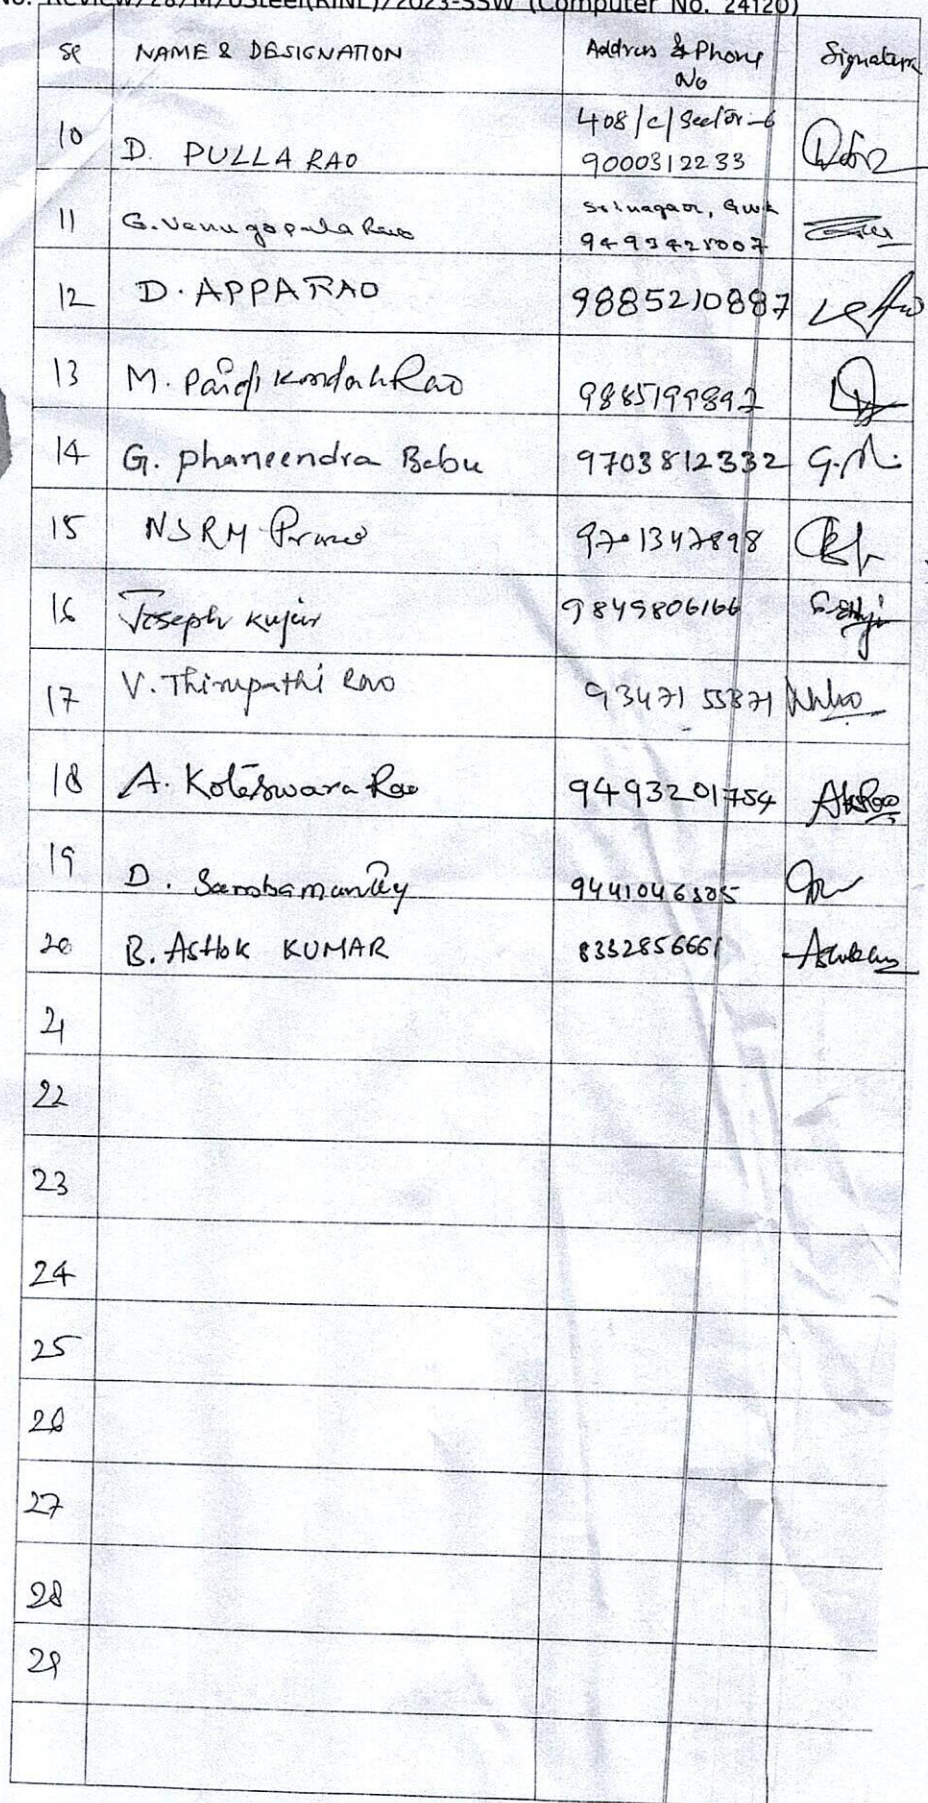 No. Review/28/M/oSteel(RINL)/2023-SSW (Computer No. 24120)
Sl NAME & DESIGNATION Address & Phone No Signature
10 D. PULLA RAO 408/C/Sector-6 9000312233
11 G. Venugopala Rao 
12 D. APPARAO 9885210887
13 M. Paidi Kondala Rao 9885199892
14 G. phaneendra Babu 9703812332
15 NSRM 9701347898
16 Joseph Kujur 9849806166
17 V. Thirupathi Rao 9347155871
18 A. Koteswara Rao 9493201754
19 D. 9441046805
20 B. ASHOK KUMAR 8332856661
21
22
23
24
25
26
27
28
29